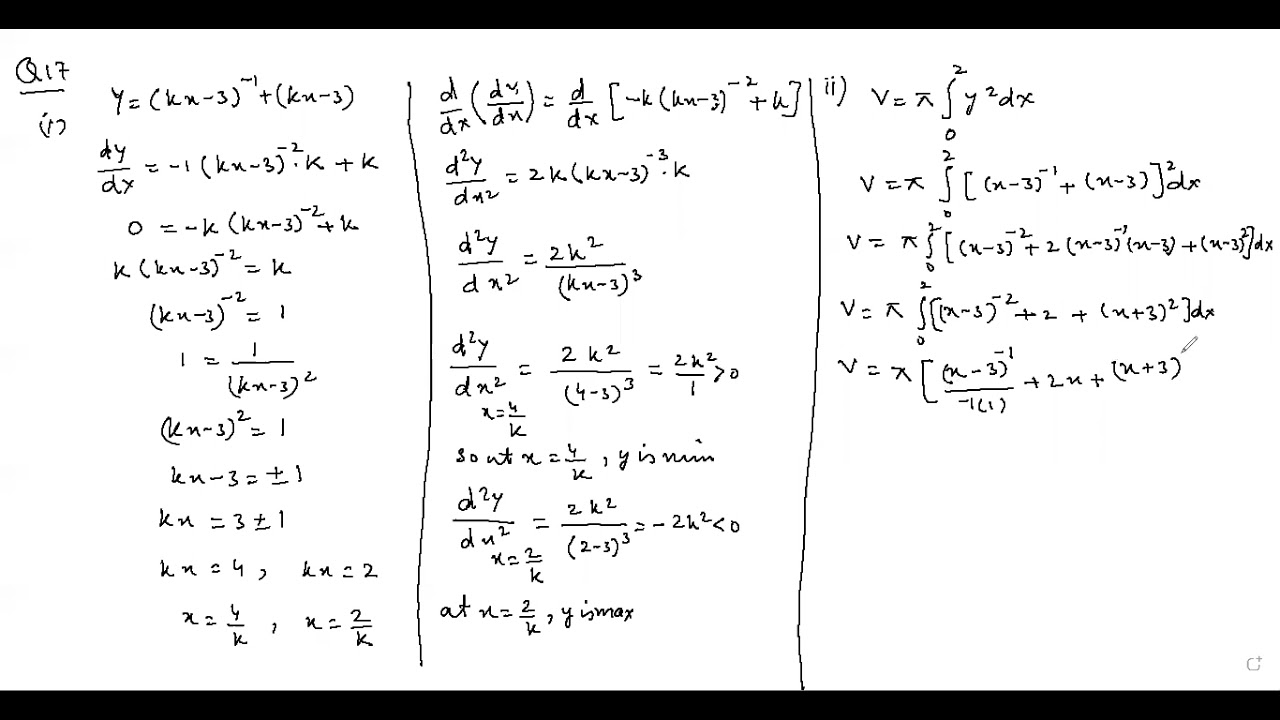 Q17
(i)
y = (kx-3)⁻¹ + (kx-3)
dy/dx = -1(kx-3)⁻²·k + k
0 = -k(kx-3)⁻² + k
k(kx-3)⁻² = k
(kx-3)⁻² = 1
1 = 1/(kx-3)²
(kx-3)² = 1
kx-3 = ±1
kx = 3±1
kx = 4, kx = 2
x = 4/k, x = 2/k
d/dx (dy/dx) = d/dx [-k(kx-3)⁻² + k]
d²y/dx² = 2k(kx-3)⁻³·k
d²y/dx² = 2k²/(kx-3)³
d²y/dx² x=4/k = 2k²/(4-3)³ = 2k²/1 > 0
so at x = 4/k, y is min
d²y/dx² x=2/k = 2k²/(2-3)³ = -2k² < 0
at x = 2/k, y is max
ii) V = π ∫₀² y² dx
V = π ∫₀² [(x-3)⁻¹ + (x-3)]² dx
V = π ∫₀² [(x-3)⁻² + 2(x-3)⁻¹(x-3) + (x-3)²] dx
V = π ∫₀² [(x-3)⁻² + 2 + (x+3)²] dx
V = π [(x-3)⁻¹/-1(1) + 2x + (x+3)